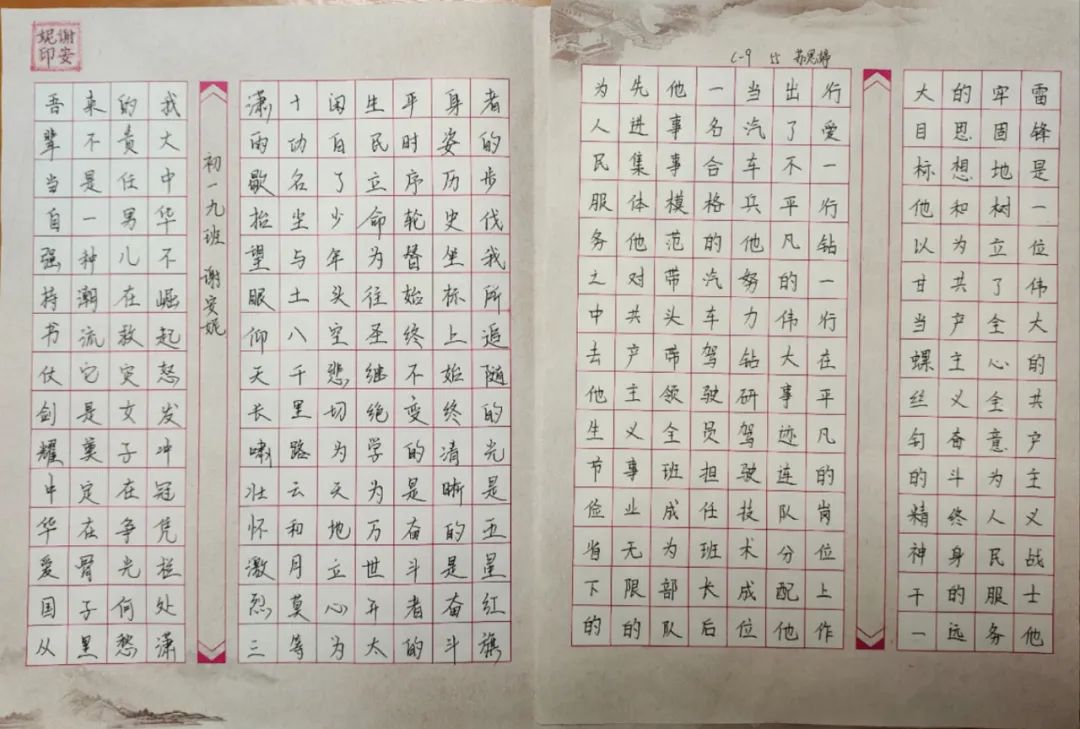 6-9 55 苏思婷
雷锋是一位伟大的共产主义战士他
牢固地树立了全心全意为人民服务
的思想和为共产主义奋斗终身的远
大目标他以甘当螺丝钉的精神干一
行爱一行钻一行在平凡的岗位上作
出了不平凡的伟大事迹连队分配他
当汽车兵他努力钻研驾驶技术成位
一名合格的汽车驾驶员担任班长后
他事事模范带头带领全班成为部队
先进集体他对共产主义事业无限的
为人民服务之中去他生节俭省下的
者的步伐我所追随的光是五星红旗
身姿历史坐标上始终清晰的是奋斗
平时序轮督始终不变的是奋斗者的
生民立命为往圣继绝学为万世开太
闲自了少年头空悲切为天地立心为
十功名尘与土八千里路云和月莫等
潇雨歇抬望眼仰天长啸壮怀激烈三
初一九班 谢安妮
我大中华不崛起怒发冲冠凭栏处潇
的责任男儿在救灾女子在争光何愁
来不是一种潮流它是奠定在骨子里
吾辈当自强持书仗剑耀中华爱国从
谢安妮印